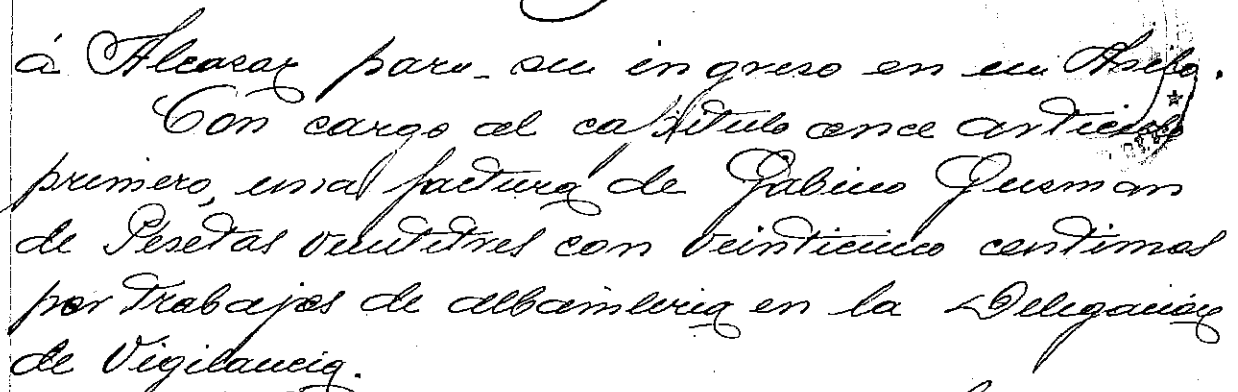 á Alcasar para su ingreso en un Asilo.
Con cargo al capitulo once articulo
primero, una factura de Gabino Gusman
de Pesetas veintitres con veinticinco centimos
por trabajos de albamileria en la Delegación
de Vigilancia.